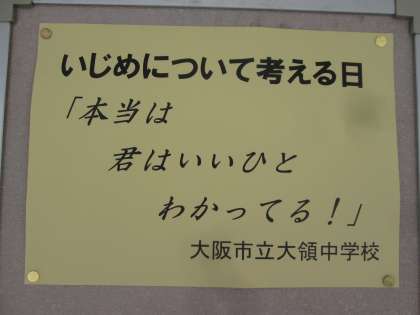 いじめについて考える日
「本当は
君はいいひと
わかってる！」
大阪市立大領中学校